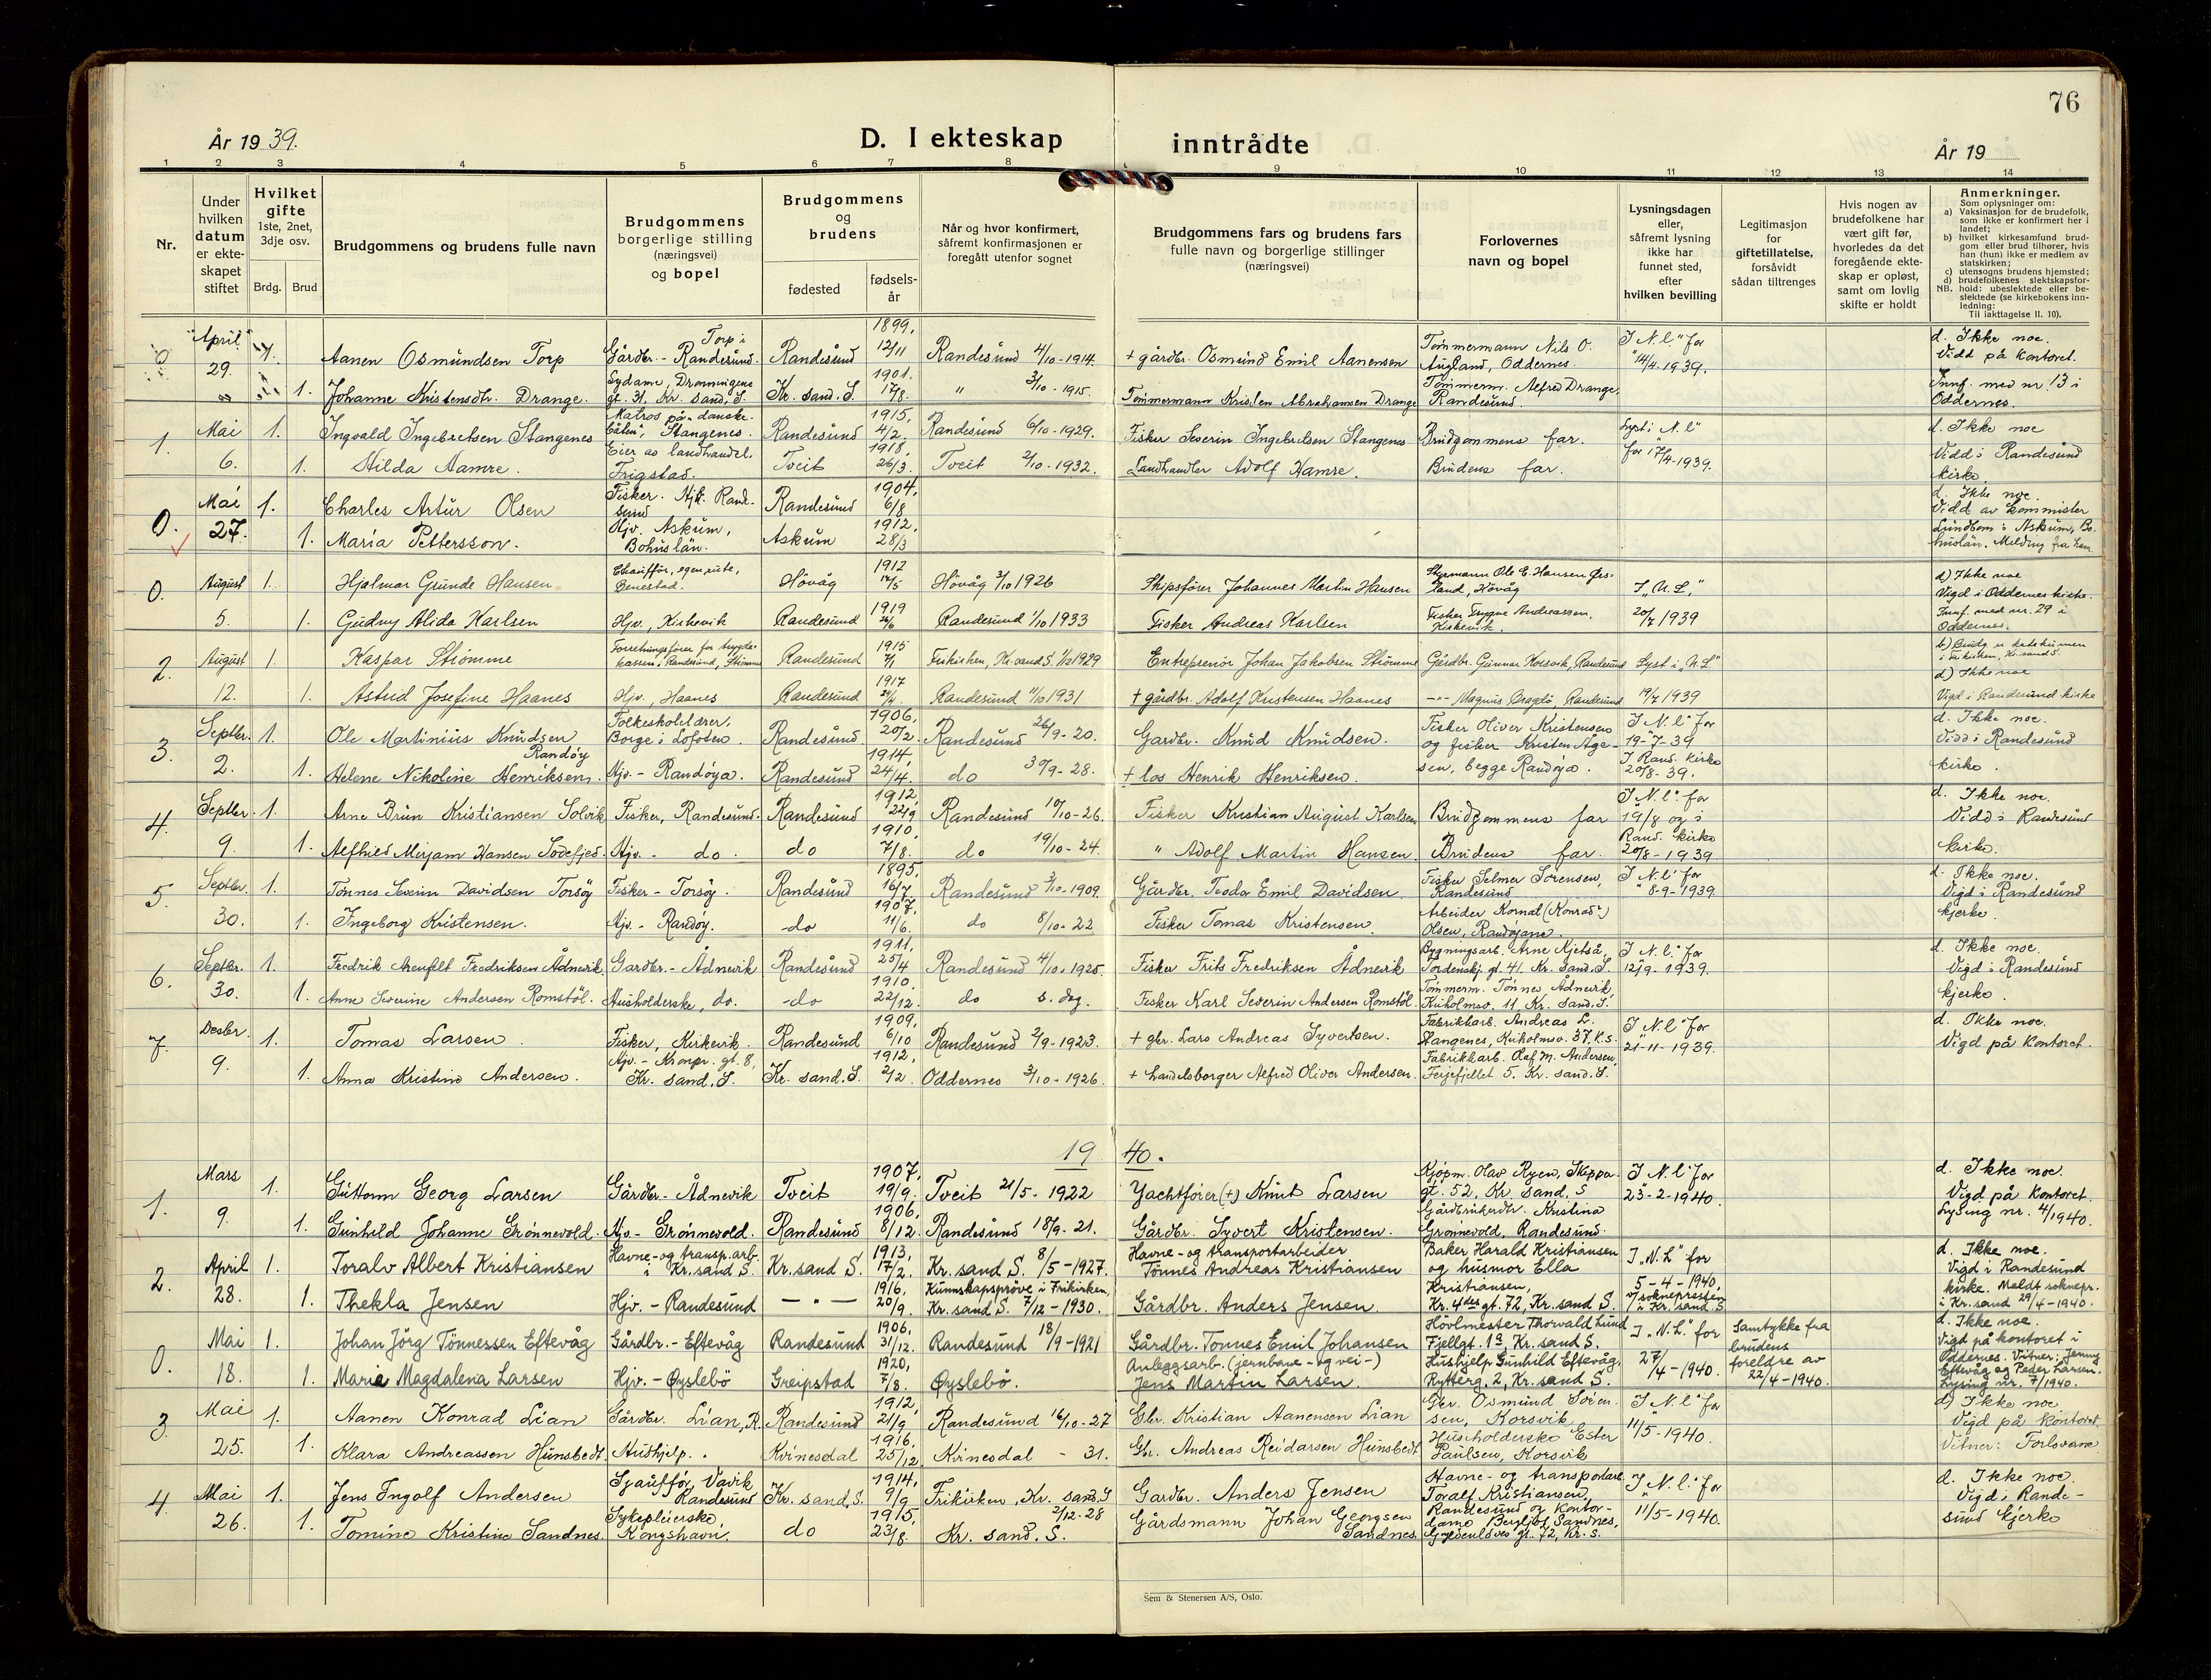 76
År 1939.
D. I ekteskap inntrådte
År 19
1 2 3 4 5 6 7 8 9 10 11 12 13 14
Nr.
Under
hvilken
datum
er ekte-
skapet
stiftet
Hvilket
gifte
1ste, 2net,
3dje osv.
Brdg. Brud
Brudgommens og brudens fulle navn
Brudgommens
borgerlige stilling
(næringsvei)
og bopel
Brudgommens
og
brudens
fødested
fødsels-
år
Når og hvor konfirmert,
såfremt konfirmasjonen er
foregått utenfor sognet
Brudgommens fars og brudens fars
fulle navn og borgerlige stillinger
(næringsvei)
Forlovernes
navn og bopel
Lysningsdagen
eller,
såfremt lysning
ikke har
funnet sted,
efter
hvilken bevilling
Legitimasjon
for
giftetillatelse,
forsåvidt
sådan tiltrenges
Hvis nogen av
brudefolkene har
vært gift før,
hvorledes da det
foregående ekte-
skap er opløst,
samt om lovlig
skifte er holdt
Anmerkninger.
Som oplysninger om:
a) Vaksinasjon for de brudefolk,
som ikke er konfirmert her i
landet;
b) hvilket kirkesamfund brud-
gom eller brud tilhører, hvis
han (hun) ikke er medlem av
statskirken;
c) utensogns brudens hjemsted;
d) brudefolkenes slektskapsfor-
NB. hold: ubeslektede eller be-
slektede (se kirkebokens inn-
ledning:
Til iakttagelse II. 10).
0 April 29. 1. Aanen Osmundsen Torp Gårdbr. - Torp i Randesund. Randesund 1899, 12/11 Randesund 4/10-1914. + gårdbr. Osmund Emil Aanensen Tømmermann Nils O. Augland, Oddernes. I "N.l." for 14/4-1939. d. Ikke noe. Vidd på kontoret.
1. Johanne Kristensdtr. Drange. Sydame, Dronningens gt. 31, Kr. sand. S. Kr. sand. S. 1901. 17/8. " 3/10-1915. Tømmermann Kristen Abrahamsen Drange Tømmerm. Alfred Drange, Randesund. Innf. med nr 13 i Oddernes.
1. Mai 6. 1. Ingvald Ingebretsen Stangenes Matros på danske-båten, Stangenes. Randesund 1915, 4/2. Randesund 6/10-1929. Fisker Severin Ingebretsen Stangenes Brudgommens far. Lyst i "N.l" for 17/4-1939. d. Ikke noe Vidd i Randesund kirke.
1. Hilda Hamre. Eier av landhandel, Frigstad. Tveit 1918, 26/3. Tveit 2/10-1932. Landhandler Adolf Hamre. Brudens far.
0. Mai 27. 1. Charles Artur Olsen Fisker. Hjt. Randesund Randesund 1904, 6/8 d. Ikke noe. Vidd av kommister Lundbom i Askum, Bohuslän. Melding fra ham
1. Maria Pettersson. Hjv. Askum, Bohuslän. Askum 1912, 28/3
0. August 5. 1. Hjalmar Grunde Hansen Chauffør, egen rute, Benestad. Høvåg 1912 Høvåg 3/10 1926 Skipsfører Johannes Martin Hansen Styrmann Ole E. Hansen Høvåg I "N.L." 20/7 1939 d) Ikke noe Vigd i Oddernes kirke. Innf. med nr. 29 i Oddernes.
1. Gudny Alida Karlsen Hjv., Kirkevik Randesund 1919 Randesund 1/10 1933 Fisker Andreas Karlsen Fisker Trygve Andreassen, Kirkevik.
2. August 12. 1. Kaspar Strømme Forretningsfører for trygdekassen, Randesund, Strømme Randesund 1915 7/1 Frikirken, Kr.sand S. 1929 Entreprenør Johan Jakobsen Strømme Gårdbr. Gunnar Korsvik, Randesund Lyst i "N.L" 19/7 1939 d) Ikke noe Vigd i Randesund kirke
1. Astrid Josefine Haanes Hjv., Haanes Randesund 1917 Randesund 11/10 1931 + gårdbr. Adolf Kristensen Haanes -"- Magnus Bragdø, Randesund
3. Septbr. 2. 1. Ole Martinius Knudsen Randøy Folkeskolelærer, Borge i Lofoten. Randesund 1906, 20/2. Randesund 26/9-20. Gardbr. Knud Knudsen. Fisker Oliver Kristensen og fisker Kristen Ågesen, begge Randøya. I "N.l" for 19-7-39 I Rand. kirke 20/8-39. d. Ikke noe. Vidd i Randesund kirke.
1. Helene Nikoline Henriksen. Hjv. - Randøya. Randesund 1914, 24/4. do 30/9-28. + los Henrik Henriksen.
4. Septbr. 9. 1. Arne Brun Kristiansen Solvik Fisker, Randesund. Randesund 1912, 22/9 Randesund 10/10-26. Fisker Kristian August Karlsen Brudgommens far I "N.l". for 19/8 og i Rand. kirke 20/8-1939 d. Ikke noe. Vidd i Randesund kirke.
1. Alfhild Mirjam Hansen Sodefjed. Hjv. - do. do 1910. 7/8. do 19/10-24. " Adolf Martin Hansen. Brudens far.
5. Septbr. 30. 1. Tønnes Severin Davidsen Torsøy Fisker - Torsøy. Randesund 1895, 16/7 Randesund 3/10-1909. Gårdbr. Teodor Emil Davidsen. Fisker Selmer Sørensen, Randesund I "N.l" for 8-9-1939. d. Ikke noe. Vigd i Randesund kjerke.
1. Ingeborg Kristensen. Hjv. - Randøy. -do 1907. 11/6. do 8/10-22 Fisker Tomas Kristensen. Arbeider Kornat (Konrad?) Olsen, Randøyane.
6. Septbr. 30. 1. Fredrik Arenfelt Fredriksen Ådnevik Gardbr. - Ådnevik Randesund 1911, 25/4 Randesund 4/10-1925. Fisker Frits Fredriksen Ådnevik Bygningsarb. Arne Kjetså, Tordenskj. gt. 41. Kr. sand. S. I "N.l." for 12/9-1939. d. Ikke noe. Vigd i Randesund kjerke.
1. Anne Severine Andersen Romstøl. Husholderske, do. -do 1910. 22/12. do s. dag. Fisker Karl Severin Andersen Romstøl. Tømmerm. Tønnes Ådnevik, Kuholmsv. 11, Kr. sand. S.
7. Desbr. 9. 1. Tomas Larsen. Fisker, Kirkevik. Randesund 1909, 6/10 Randesund 2/9-1923. + gbr. Lars Andreas Syvertsen. Fabrikkarb. Andreas L. Stangenes, Kuholmsv. 37. K.S. I "N.l" for 21-11-1939. d. Ikke noe. Vigd på kontoret.
1. Anna Kristine Andersen. Hjv. - Kronpr. gt. 8, Kr. sand. S. Kr. sand. S. 1912, 2/2. Oddernes 3/10-1926. + handelsborger Alfred Oliver Andersen. Fabrikkarb. Olaf M. Andersen, Ferjefjellet 5. Kr. sand. S.
1940.
1. Mars 9. 1. Guttorm Georg Larsen Gårdbr. - Ådnevik Tveit 1907, 19/9. Tveit 21/5-1922 Yachtfører (+) Knut Larsen Kjøpm. Olav Ryen, Skippergt. 52, Kr. sand. S I "N.l" for 23-2-1940. d. Ikke noe. Vigd på kontoret. Lysing nr. 4/1940.
1. Gunhild Johanne Grønnevold. Hjv. - Grønnevold. Randesund 1906, 8/12. Randesund 18/9-21. Gårdbr. Syvert Kristensen. Gårdbrukerdtr. Kristina Grønnevold, Randesund.
2. April 28. 1. Toralv Albert Kristiansen Havne- og transp.arb. i Kr.sand S. Kr.sand S. 1913, 17/2. Kr.sand S. 8/5-1927. Havne- og transportarbeider Tønnes Andreas Kristiansen Baker Harald Kristiansen og husmor Ella Kristiansen, Kr. 4des gt. 72, Kr.sand S. I "N.L" for 5-4-1940, v/ soknepresten i Kr.sand S d. Ikke noe. Vigd i Randesund kirke. Meldt soknepr. i Kr.sand 29/4-1940.
1. Thekla Jensen Hjv. - Randesund - " - 1916, 20/9. Kunnskapsprøve i Frikirken, Kr.sand S. 7/12-1930. Gårdbr. Anders Jensen
0. Mai 18. 1. Johan Jörg Tönnessen Eftevåg Gårdbr. - Eftevåg Randesund 1906, 31/12. Randesund 18/9-1921 Gårdbr. Tönnes Emil Johansen Hövlmester Thorvald Lund Fjellgt. 1a, Kr.sand S. I "N.L." for 27/4-1940. Samtykke fra brudens foreldre av 22/4-1940. d. Ikke noe. Vigd på kontoret i Oddernes. Vitner: Jenny Eftevåg og Peder Larsen. Lysing nr. 7/1940.
1. Maria Magdalena Larsen Hjv. - Øyslebö Greipstad 1920, 7/8. Øyslebö. Anleggsarb. (jernbane- og vei-) Jens Martin Larsen. Hushjelp Gunhild Eftevåg, Rytterg. 2, Kr.sand S.
3 Mai 25. 1. Aanen Konrad Lian Gårdbr. Lian, R. Randesund 1912, 21/9 Randesund 16/10-27 Gbr. Kristian Aanensen Lian Gbr. Osmund Sørensen, Korsvik I "N.l" for 11/5-1940. d) Ikke noe Vigd på kontoret. Vitner: Forlovarne
1. Klara Andreassen Hunsbedt. Hushjelp. Kvinesdal 1916, 25/12 Kvinesdal - 31. Gbr. Andreas Reidarsen Hunsbedt Husholderske Ester Paulsen, Korsvik
4 Mai 26. 1. Jens Ingolf Andersen Sjauffør, Vavik Randesund Kr. sand. S. 1914, 9/9 Frikirken, Kr. sand. S 2/12-28 Gardbr. Anders Jensen Havne- og transportarb. Toralf Kristiansen, Randesund og kontordame Bergljot Sandnes, Gyldenløves gt. 72, Kr. S. I "N.l" for 11/5-1940. d. Ikke noe. Vigd i Randesund kjerke
1. Tomine Kristine Sandnes. Sykepleierske Kongshavn. do 1915, 23/8. Kr. sand. S. Gårdsmann Johan Georgsen Sandnes
Sem & Stenersen A/S, Oslo.